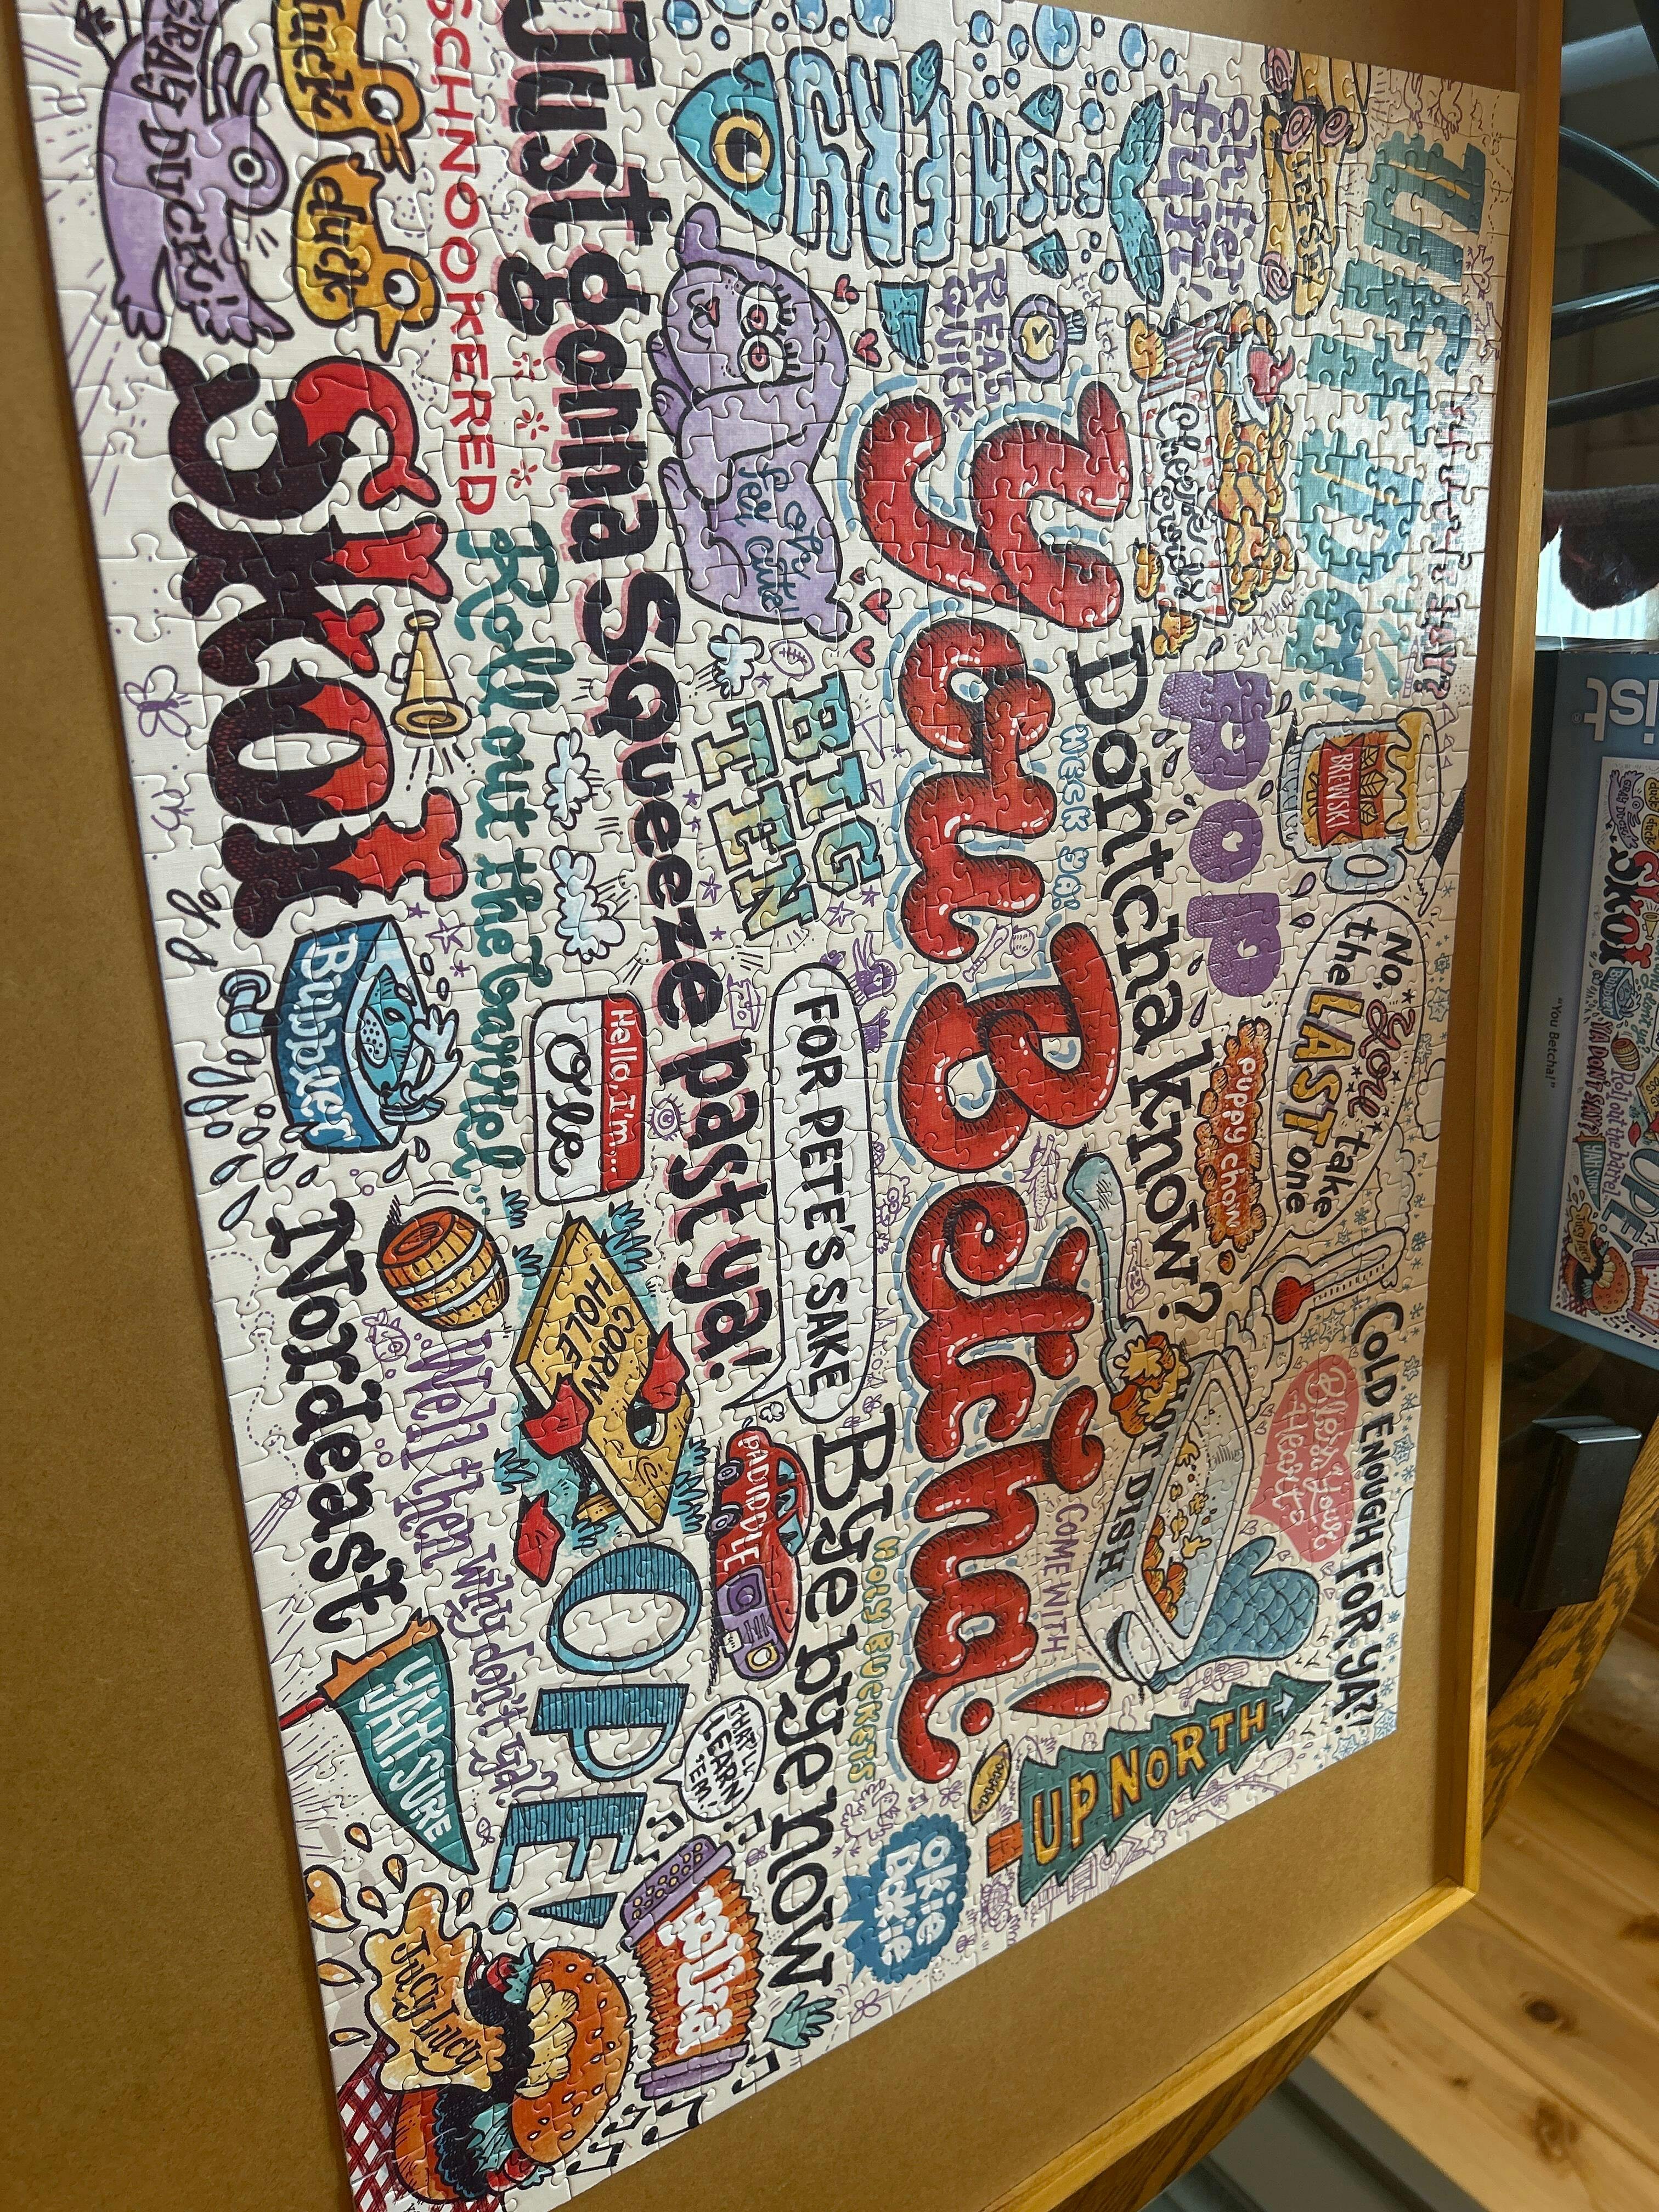 GRAY DUCK!
duck
duck
SCHNOOKERED
SKOL
Bubbler
Nordeast
YAH SURE
Roll out the barrel
Well then why don't ya?
Juicy Lucy
Just gonna squeeze past ya!
Hello, I'm...
Ole
CORN HOLE
OPE!
PADIDDLE
THAT'LL LEARN 'EM!
polka
FISH FRY
Oh, fer cute!
BIG TEN
FOR PETE'S SAKE
Bye bye now
REAL QUICK
You Betcha!
HOLY BUCKETS
Okie Dokie
oh, fer fun!
Cheese Curds
Dontcha know?
HECK YA!
HOT DISH
COME WITH
UP NORTH
pop
puppy chow
UFF DA!
BREWSKI
No, you take
the LAST one
COLD ENOUGH FOR YA?!
Bless Your Heart
ist
"You Betcha!"